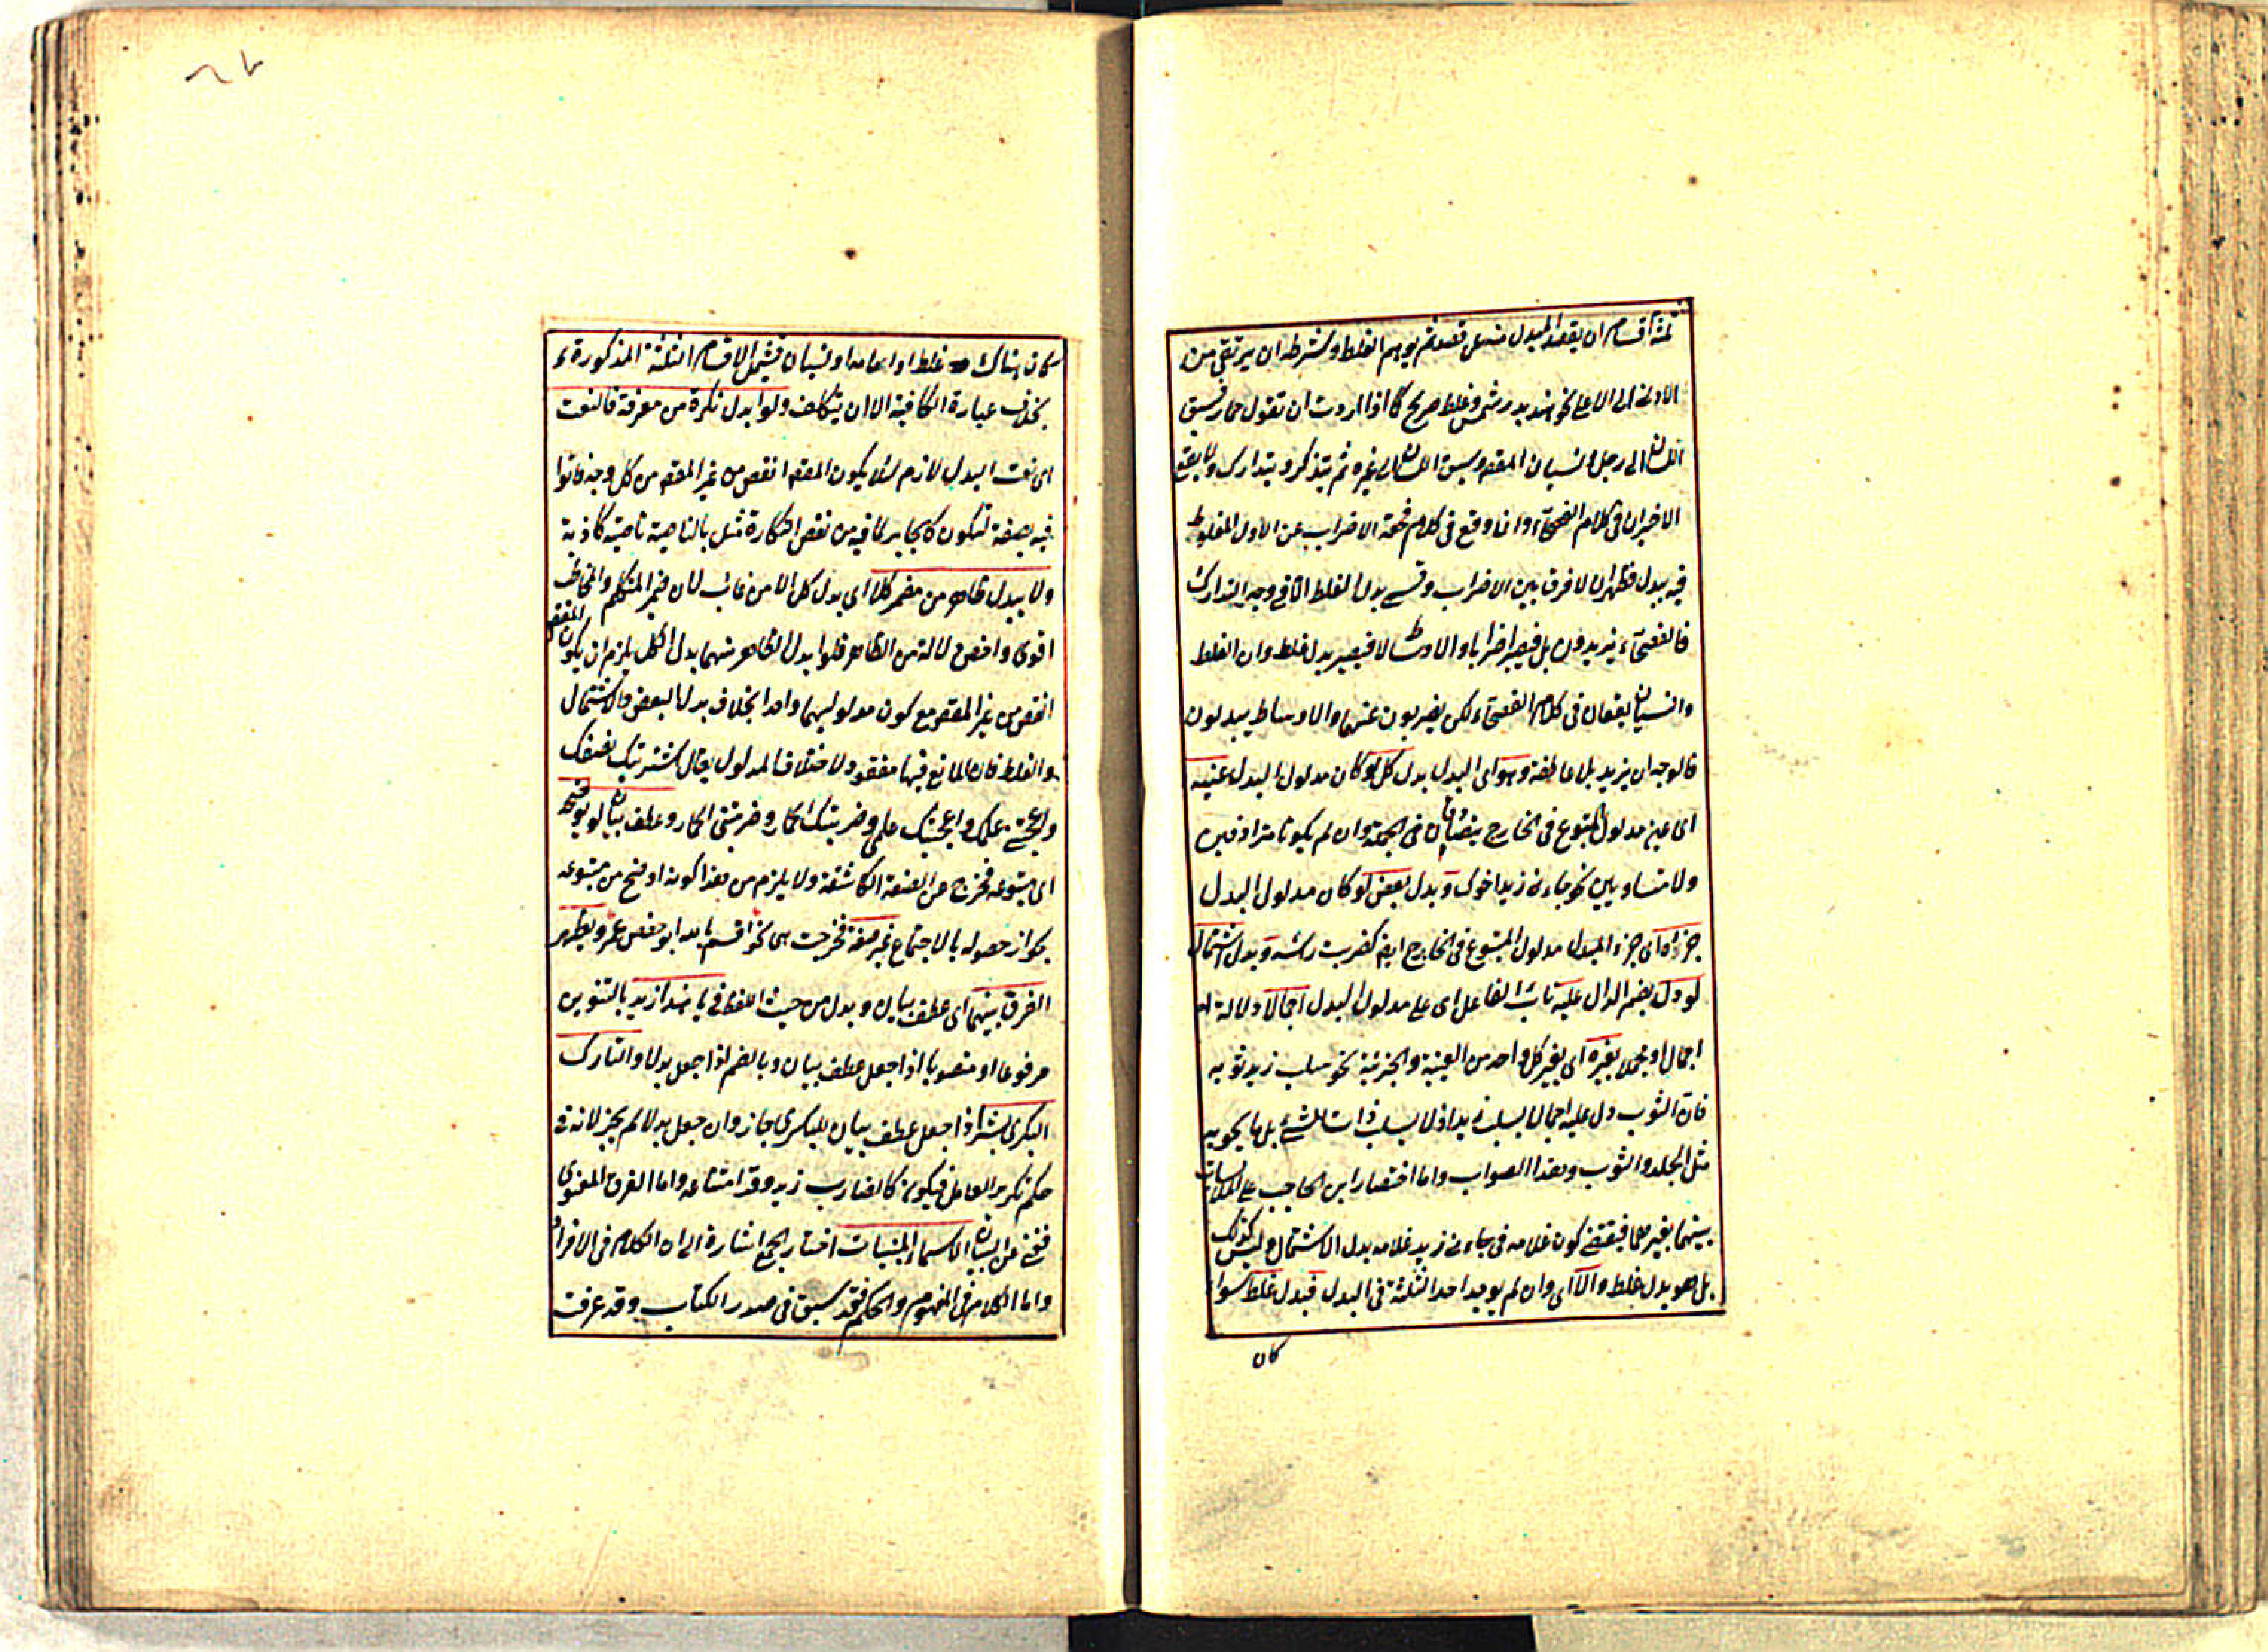 ثلثة اقسام ان يقصد المبدل منه عن قصد ثم يوهم الغلط وشرطه ان يرتقى من
الادنى الى الاعلى نحو هند بدر شمس وغلط صريح كما اذا اردت ان تقول حمار فسبق
اللسان الى رجل ونسيان المقصود يسبق اللسان الى غيره ثم يتذكر ويتدارك ولا يقع
الاخيران فى كلام الفصحآء وان وقع فى كلام فحقه الاضراب عن الاول المغلوط
فيه ببل فظهر ان لا فرق بين الاضراب وقسمى بدل الغلط الا فى وجه التدارك
فالفصحآء يزيدون بل فيصير اضرابا والاوساط لا فيصير بدل غلط وان الغلط
والنسيان يقعان فى كلام الفصحآء لكن يضربون عنهما والاوساط يبدلون
فالوجه ان يزيد بل عاطفة وهو اى البدل بدل كل لو كان مدلول البدل عينه
اى عين مدلول المتبوع فى الخارج يتصادقان فى الجملة وان لم يكونا مترادفين
ولا متساويين نحو جاءنى زيد اخوك وبدل بعض لو كان مدلول البدل
جزءه اى جزء المبدل مدلول المتبوع فى الخارج ايضا كضربت رأسه وبدل اشتمال
لو دل بضم الدال عليه نائب الفاعل اى على مدلول البدل اجمالا دلالة او
اجمال او مجملا بغيره اى بغير كل واحد من العينية والجزئية نحو سلب زيد ثوبه
فان الثوب دل عليه اجمالا بسلب زيد اذ لا يسلب ذات الشئ بل ما يحويه
مثل الجلد والثوب وهذا الصواب واما اختصار ابن الحاجب على الملابسات
بينهما بغيرهما فيقتضى كون غلامه فى جاءنى زيد غلامه بدل الاشتمال وليس كذلك
بل هو بدل غلط والا اى وان لم يوجد احد الثلثة فى البدل فبدل غلط سواء
كان
كان هناك غلط او ادعاؤه او نسيان فيشمل الاقسام الثلثة المذكورة
بخلاف عبارة الكافية الا ان يتكلف ولو ابدل نكرة من معرفة فالنعت
اى نعت البدل لازم لئلا يكون المقصود انقص من غير المقصود من كل وجه فاتوا
فيه بصفة لتكون كالجابر لما فيه من نقص النكارة مثل بالناصية ناصية كاذبة
ولا يبدل ظاهر من مضمر كلا اى بدل كل الا من غائب لان ضمير المتكلم والمخاطب
اقوى واخص دلالة من الظاهر فلو ابدل الظاهر منهما بدل الكل يلزم ان يكون المقصود
انقص من غير المقصود مع كون مدلوليهما واحدا بخلاف بدل البعض والاشتمال
والغلط فان المانع فيها مفقود لاختلاف المدلول يقال اشتريتك نصفك
واعجبتنى علمك واعجبتك علمى وضربتك الحمار وضربتنى الحمار وعطف بيان لو يوضحه
اى متبوعه فخرج عن الصفة الكاشفة ولا يلزم من هذا كونه اوضح من متبوعه
لجواز حصوله بالاجتماع غير صفة فخرجت هى نحو اقسم بالله ابو حفص عمر ويظهر
الفرق بينهما اى عطف بيان وبدل من حيث اللفظ فى يا هذا زيد بالتنوين
مرفوعا او منصوبا اذا جعل عطف بيان وبالضم اذا جعل بدلا والتارك
البكرى بشر اذا جعل عطف بيان للبكرى جاز وان جعل بدلا لم يجز لانه فى
حكم تكرير العامل فيكون كالضارب زيد وقد امتناعه واما الفرق المعنوى
فغنى عن البيان الاسماء المبنيات اختار الجمع اشارة الى ان الكلام فى الافراد
واما الكلام فى المفهوم والحكم فقد سبق فى صدر الكتاب وقد عرفت